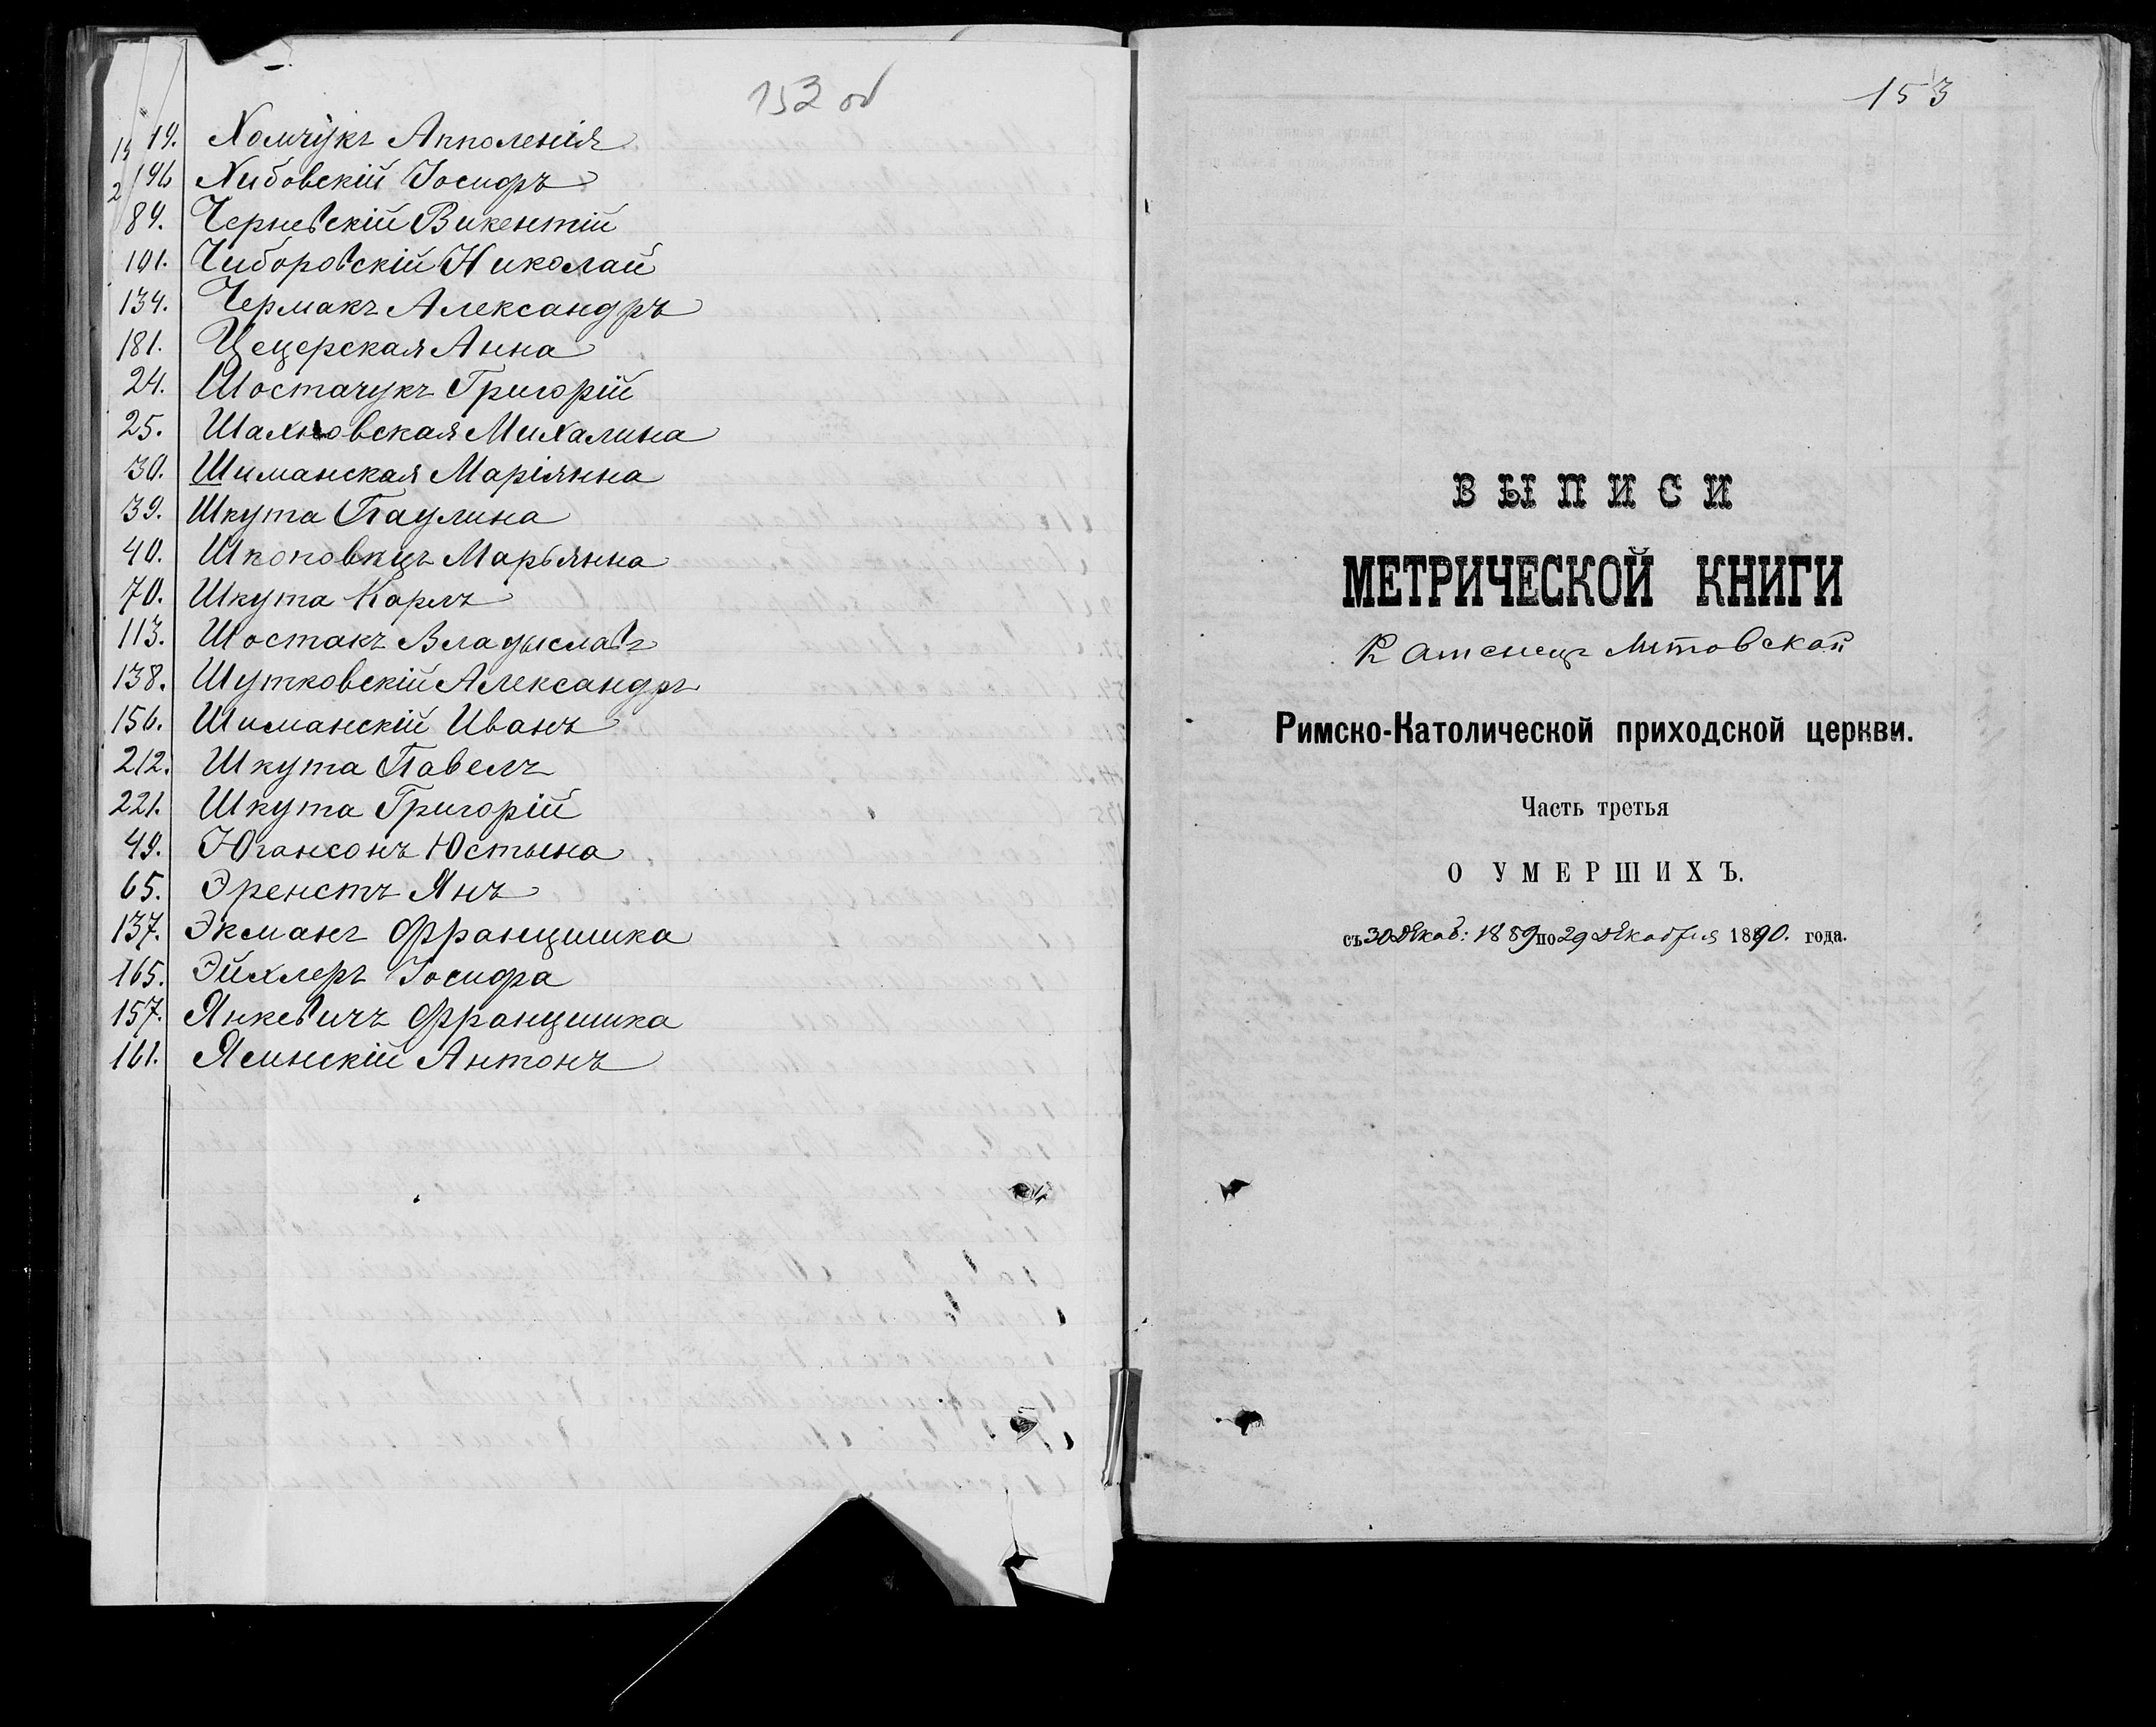 152 об
19. Хомчукъ Апполенія
196 Хибовскій Іосифъ
89. Черневскій Викентій
101. Чиборовскій Николай
134. Чермакъ Александръ
181. Цецерская Анна
24. Шостачукъ Григорій
25. Шахновская Михалина
30. Шиманская Маріянна
39. Шкута Паулина
40. Шкоповкцъ Марьянна
70. Шкута Карлъ
113. Шостакъ Владыславъ
138. Шутковскій Александръ
156. Шиманскій Иванъ
212. Шкута Павелъ
221. Шкута Григорій
49. Югансонъ Юстына
65. Эренстъ Янъ
137. Экманъ Францишка
165. Эйхлеръ Іосифа
157. Янкевичъ Францишка
161. Ясинскій Антонъ
153
ВЫПИСИ
МЕТРИЧЕСКОЙ КНИГИ
Каменецъ Литовской
Римско-Католической приходской церкви.
Часть третья
О УМЕРШИХЪ.
съ 30 Декаб: 1889 по 29 Декабря 1890. года.